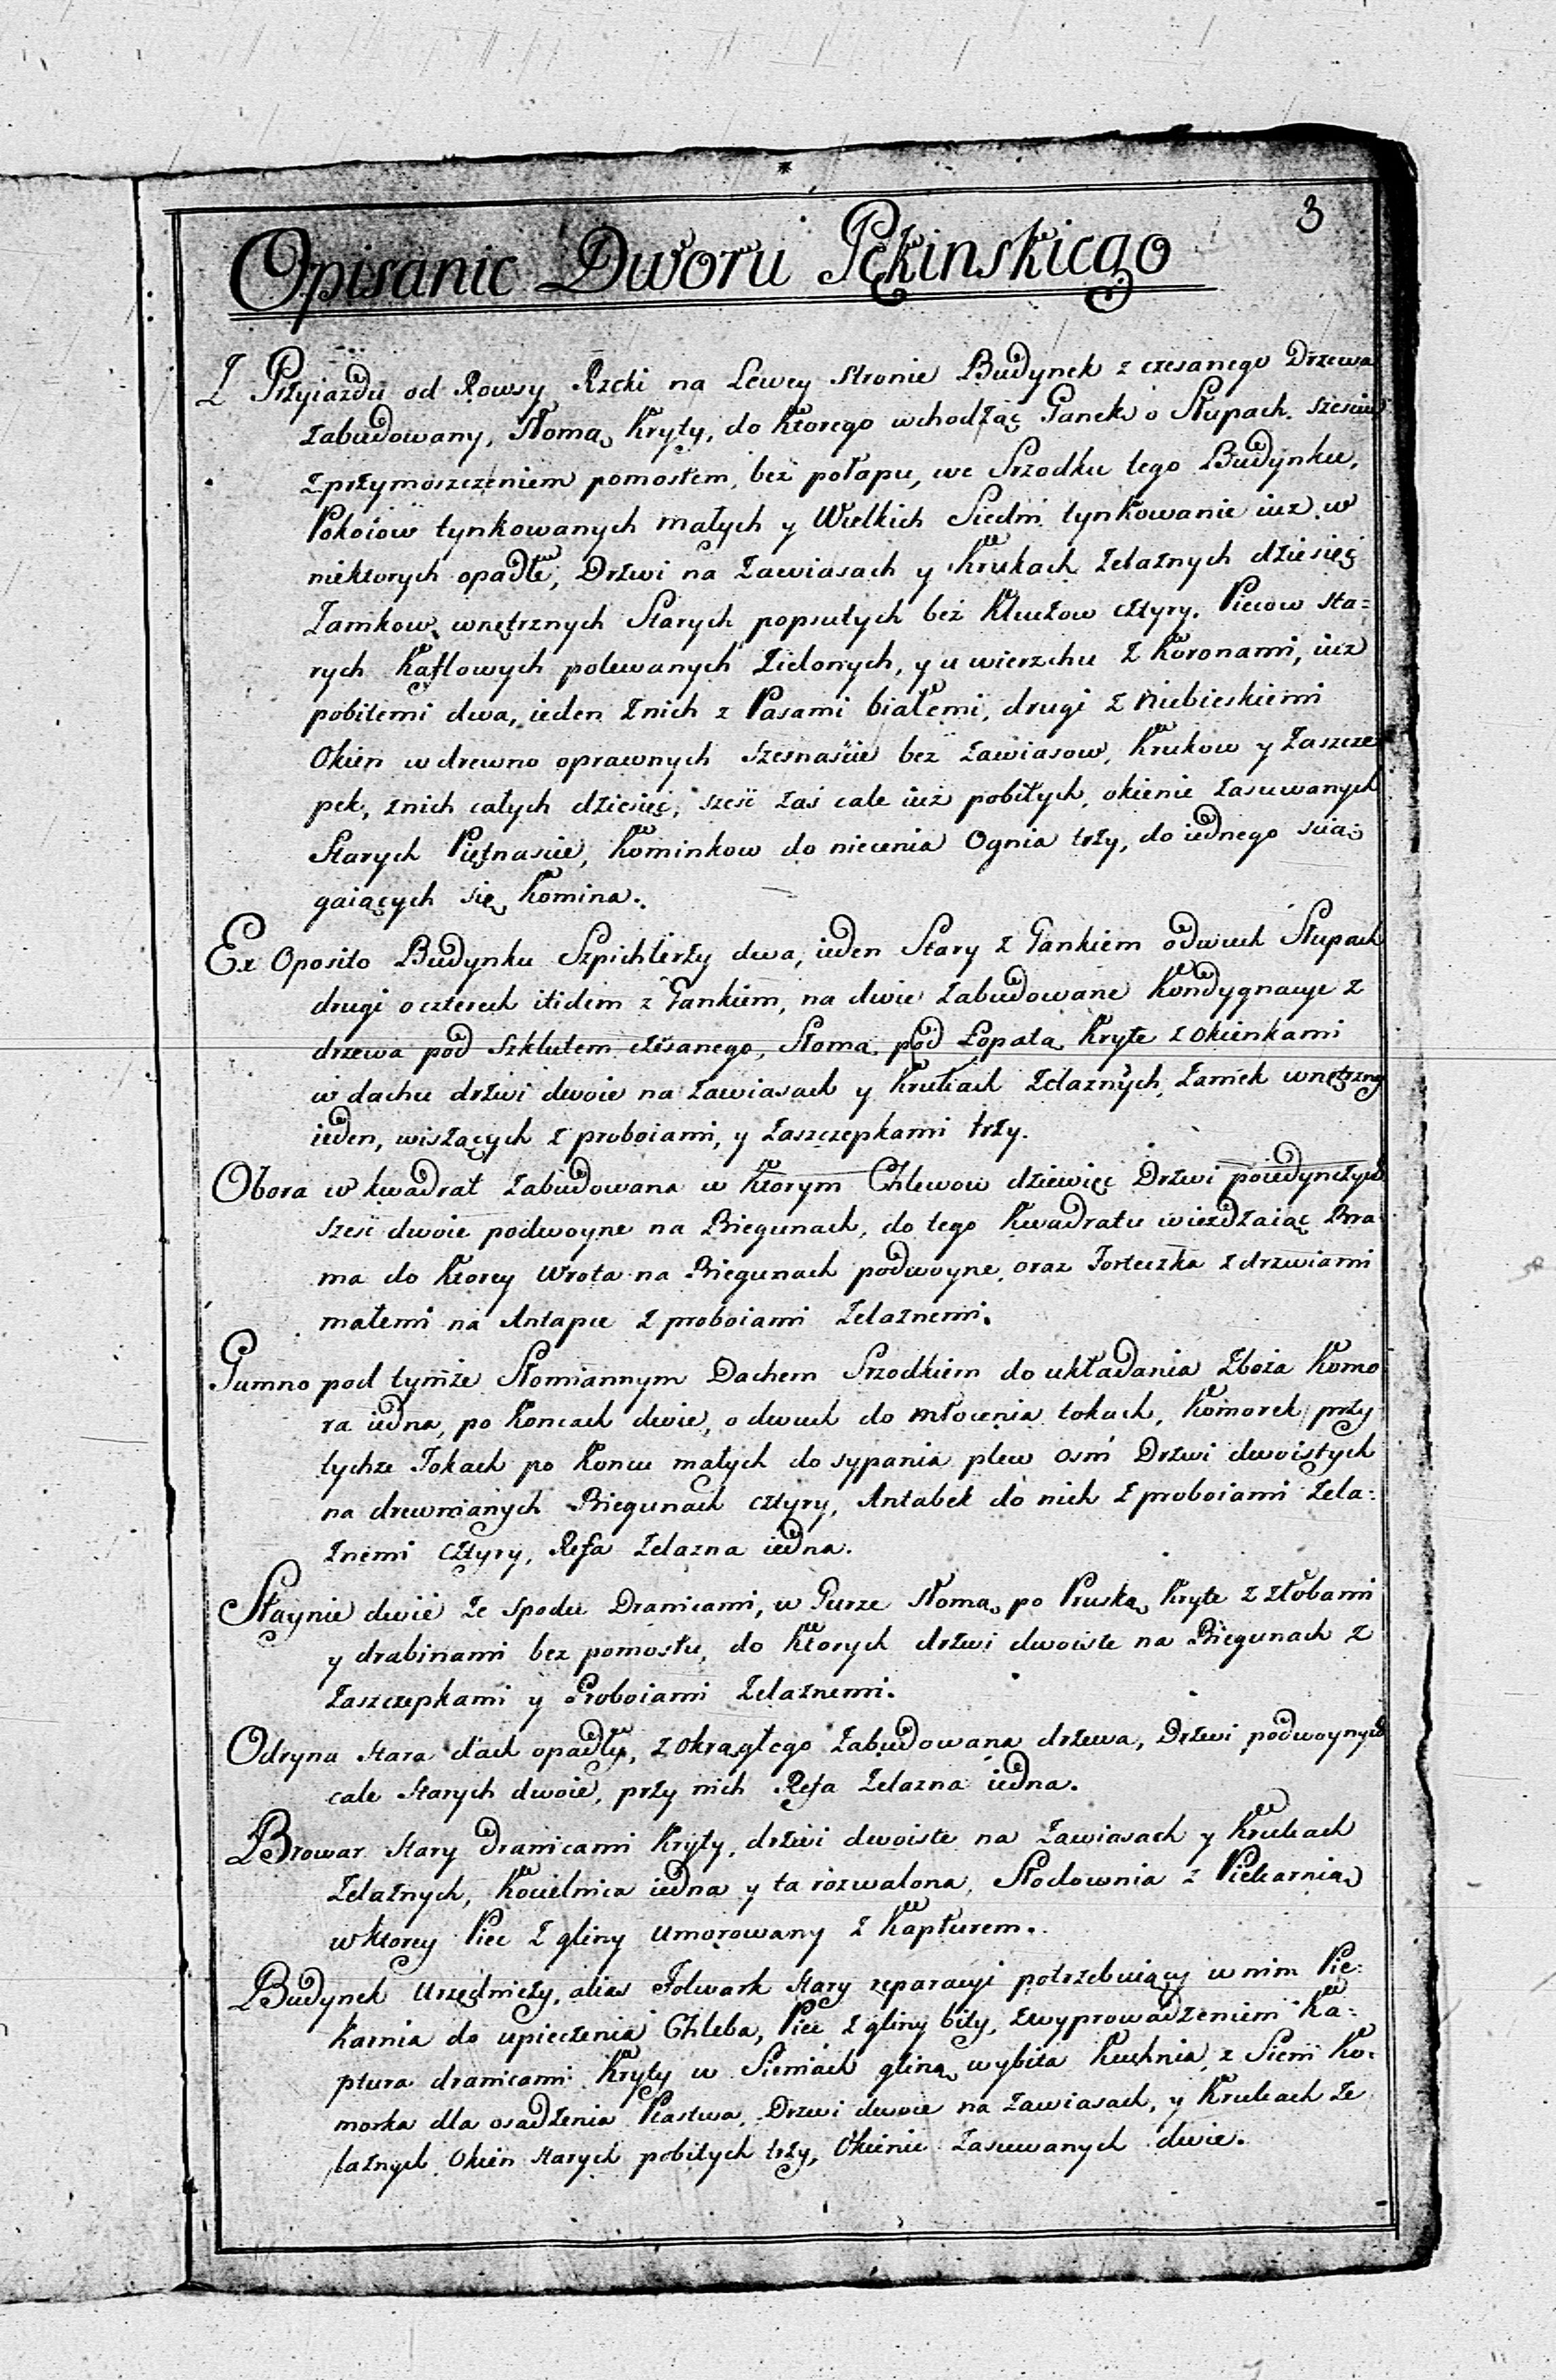 3
Opisanie Dworu Pękinskiego
Z Przyiazdu od Rowsy Rzeki na Lewey stronie Budynek z czesanego Drzewa
zabudowany, Słomą kryty, do ktorego wchodząc Ganek o Słupach sześciu
z przymoszczeniem pomostem, bez połapu, we Srzodku tego Budynku,
Pokoiow tynkowanych małych y Wielkich Siedm tynkowanie iuz w
niektorych opadłe, Drzwi na Zawiasach y Krukach Żelaznych dziesięć
Zamkow wnętrznych Starych popsutych bez Kluczow cztyry. Piecow sta=
rych Kaflowych polewanych Zielonych, y u wierzchu z Koronami, iuz
pobitemi dwa, ieden z nich z Pasami białemi, drugi z Niebieskiemi
Okien w drewno oprawnych szesnaście bez zawiasow, Krukow y Zaszcze
pek, z nich całych dziesięć, sześć zaś cale iuż pobitych, okienic zasuwanych
Starych Piętnaście, Kominkow do niecenia Ognia trzy, do iednego scią=
gaiących się Komina.
Ex Oposito Budynku Szpichlerzy dwa, ieden Stary z Gankiem o dwuch Słupach
drugi o czterech itidem z Gankiem, na dwie zabudowane Kondygnacye z
drzewa pod Szklutem czesanego, Słomą pod Łopatą Kryte z okienkami
w dachu drzwi dwoie na zawiasach y Krukach Żelaznych, Zamek wnętrzny
ieden, wiszących z proboiami, y zaszczepkami trzy.
Obora w kwadrat zabudowana w ktorym Chlewow dziewięć Drzwi poiedynczych
sześć dwoie podwoyne na Biegunach, do tego Kwadratu wieżdzaiąc Bra
ma do ktorey Wrota na Biegunach podwoyne, oraz Forteczka z drzwiami
małemi na Antapie z proboiami Żelaznemi.
Gumno pod tymże Słomiannym Dachem Srzodkiem do układania Zboża Komo
ra iedna, po Koncach dwie, o dwuch do młocenia tokach, Komorek przy
tychże Tokach po Koncu małych do sypania plew osm Drzwi dwoistych
na drewnianych Biegunach cztyry, Antabek do nich z proboiami Żela=
znemi cztyry, Refa Żelazna iedna.
Staynie dwie ze spodu Dranicami, w Gurze Słomą po Pruską Kryte z złobami
y drabinami bez pomostu, do ktorych drzwi dwoiste na Biegunach z
Zaszczepkami y Proboiami Żelaznemi.
Odryna stara dach opadły, z okrągłego zabudowana drzewa, Drzwi podwoynych
cale starych dwoie, przy nich Refa Żelazna iedna.
Browar stary Dranicami Kryty, drzwi dwoiste na Zawiasach y Krukach
Żelaznych, Kocielnica iedna y ta rozwalona, Słodownia z Piekarnią
w ktorey Piec z gliny umorowany z Kapturem.
Budynek Urzędniczy, alias Folwark stary reparacyi potrzebuiący w nim Pie=
karnia do upieczenia Chleba, Piec z gliny bity, z wyprowadzeniem Ka=
ptura dranicami Kryty w Sieniach gliną wybita Kuchnia, z Sieni Ko=
morka dla osadzenia Ptastwa, Drzwi dwoie na zawiasach, y Krukach Że
laznych Okien starych pobitych trzy, Okienic zasuwanych dwie.